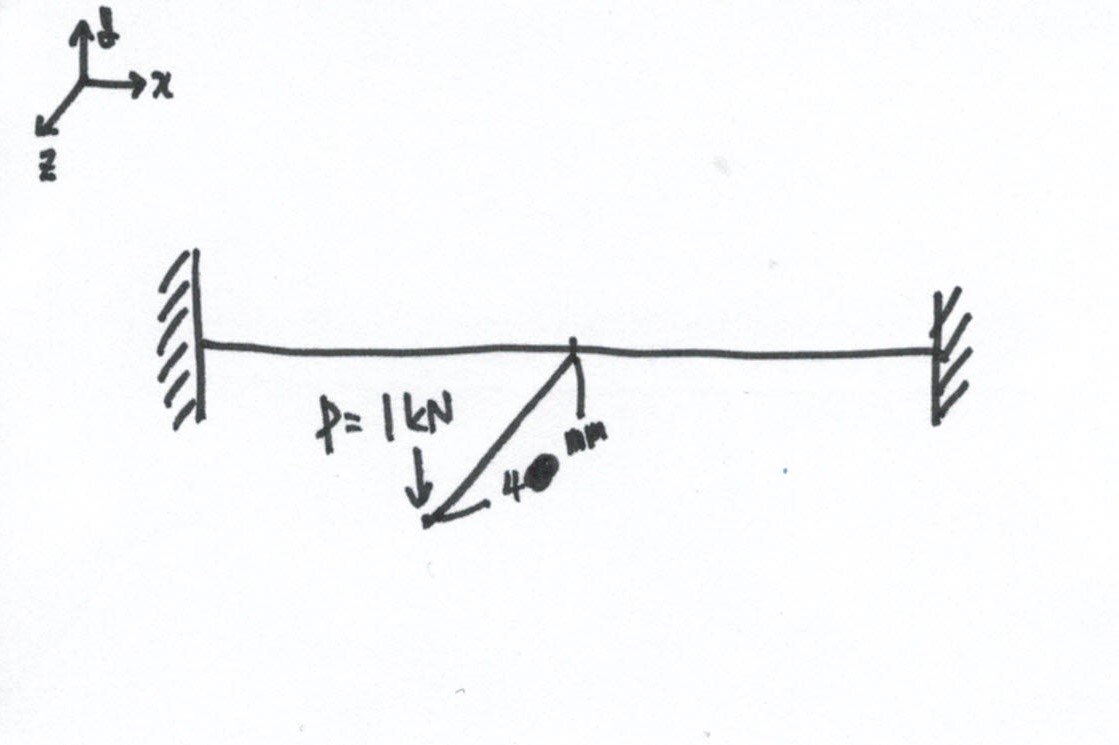 y
x
z
P= 1kN
4 mm